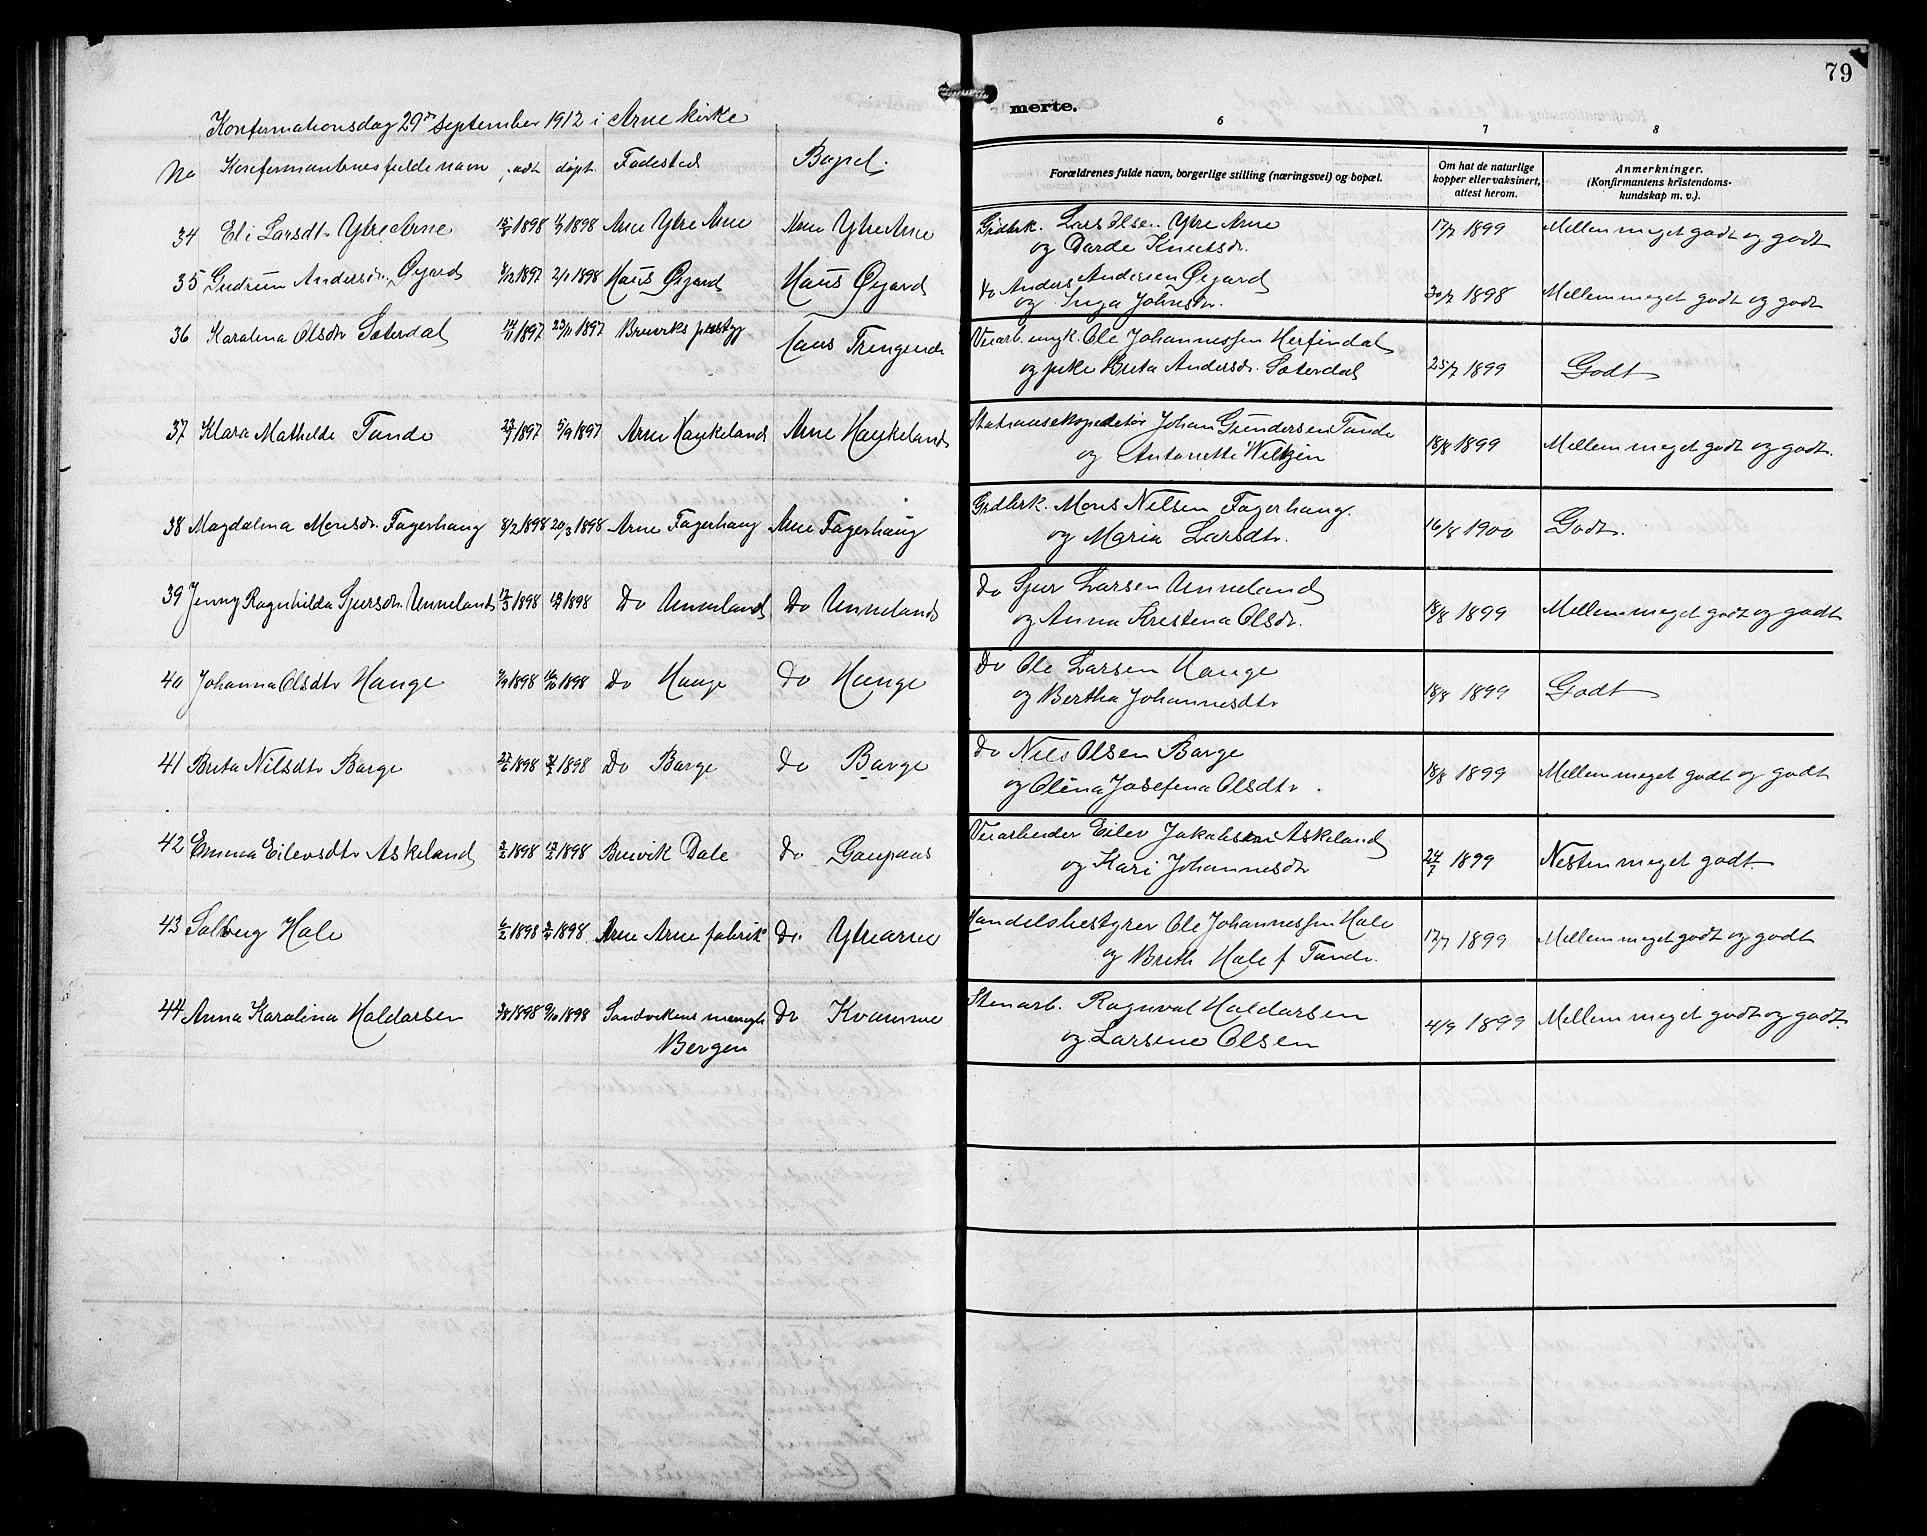 79
Konfermationsdag 29de September 1912 i Arne kirke
merte.
6 7 8
No Konfermantenes fulde navn født døpt. Fødested Bopel.
Forældrenes fulde navn, borgerlige stilling (næringsvei) og bopæl.
Om hat de naturlige kopper eller vaksinert, attest herom.
Anmerkninger. (Konfirmantens kristendoms-kundskap m. v.).
34 Eli Larsdtr Ytre Arne 1898 1898 Arne Ytre Arne Arne Ytre Arne Grdbrk. Lars Olsen Ytre Arne 17/7 1899 Mellem meget godt og godt
og Darde Knutsdr.
35 Gudrun Andersdr. Øgard 1897 2/1 1898 Haus Øgard Haus Øgard do Anders Andersen Øgard 30/7 1898 Mellem meget godt og godt
og Inga Johnsdr.
36 Karolina Olsdr Søterdal 1897 23/11 1897 Bruviks prestgj Haus Trengereid Veiarb. ungk. Ole Johannessen Herfindal 25/7 1899 Godt
og pike Brita Andersdr. Søterdal
37 Klara Mathilde Tunde 1897 5/9 1897 Arne Haukeland Arne Haukeland Stationsekspeditør Johan Gundersen Tunde 18/8 1899 Mellem meget godt og godt.
og Antonette Wiltzin
38 Magdalena Monsdr. Fagerhaug 8/2 1898 20/3 1898 Arne Fagerhaug Arne Fagerhaug Grdbrk. Mons Nilsen Fagerhaug. 16/8 1900 Godt.
og Maria Larsdtr.
39 Jenny Ragnhilda Sjursdr. Unneland 12/3 1898 1898 Do Unneland Do Unneland Do Sjur Larsen Unneland 18/8 1899 Mellem meget godt og godt
og Anna Kristena Olsdr.
40 Johanna Olsdtr Hauge 1898 1898 Do Hauge Do Hauge Do Ole Larsen Hauge 18/8 1899 Godt
og Bertha Johannesdtr
41 Brita Nilsdtr Borge 1898 1898 Do Borge Do Borge Do Nils Olsen Borge 18/8 1899 Mellem meget godt og godt
og Olina Josefena Olsdtr.
42 Emma Eilevsdtr Askeland 1898 1898 Bruvik Dale Do Gaupaas Veiarbeider Eilev Jakobsen Askeland 24/7 1899 Nesten meget godt.
og Kari Johannesdtr
43 Solveig Hole 1898 1898 Arne Arne fabrik Do. Ytrearne Handelsbestyrer Ole Johannessen Hole 17/7 1899 Mellem meget godt og godt
og Brith Hole f Tunde.
44 Anna Karolina Haldorsen 1898 9/10 1898 Sandvikens menigh Do Kvamme Stenarb. Ragnval Haldorsen 4/9 1899 Mellem meget godt og godt.
Bergen og Larsine Olsen